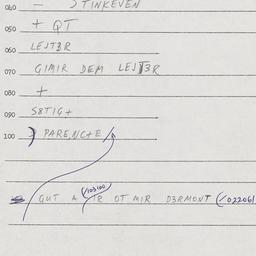 040 — STINKEVEN
050 + QT
060 LEJTBR
070 GIMIR DEM LEJT3R
080 +
090 S8TIG+
100 PARENC+E
GUT A (/103100 IR OT MIR D3RMONT (/022061